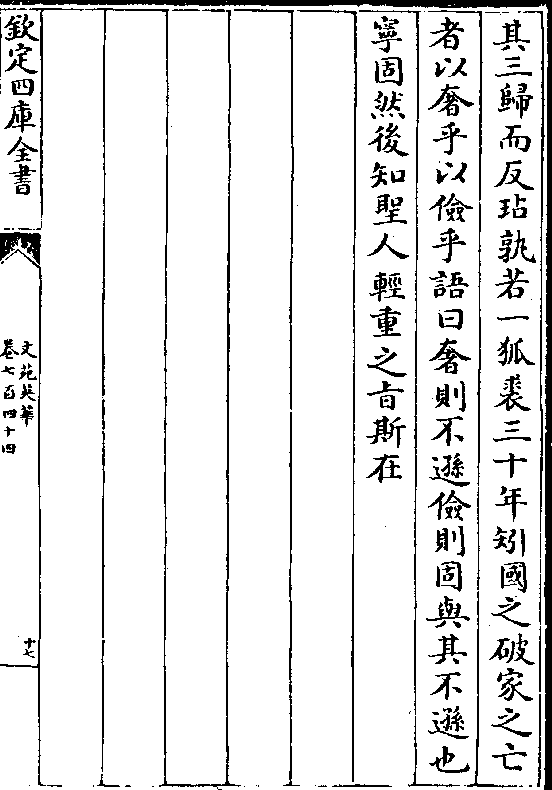 其三歸而反玷孰若一狐裘三十年矧國之破家之亡
者以奢乎以儉乎語曰奢則不遜儉則固與其不遜也
寧固然後知聖人輕重之旨斯在
欽定四庫全書
文苑英華
卷七百四十四
十七